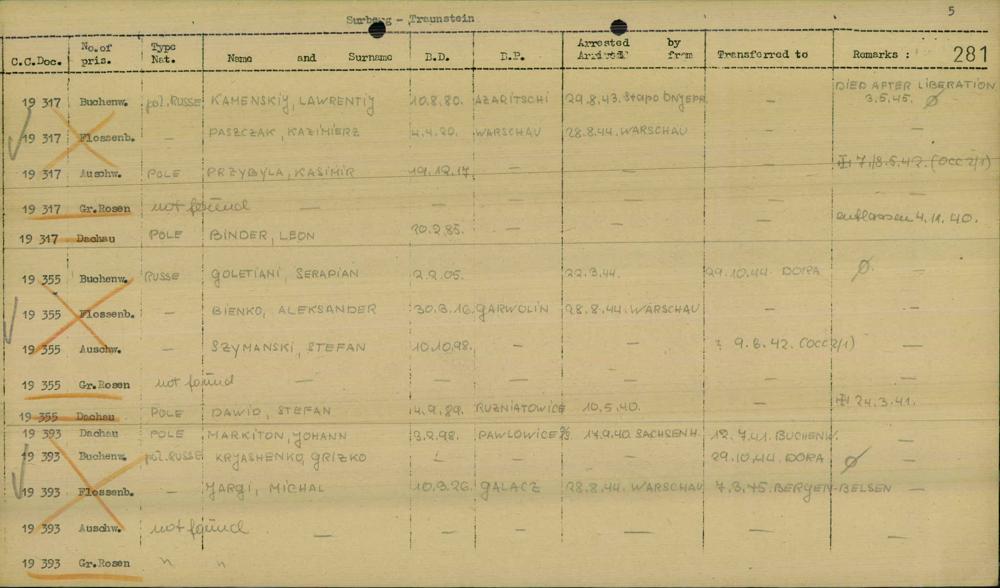 5
Surberg - Traunstein
281
C.C.Doc. No. of pris. Type Nat. Name and Surname B.D. B.P. Arrested by Arrived from Transferred to Remarks :
19 317 Buchenw. pol. RUSSE KAMENSKIY, LAWRENTIY 10.8.80. AZARITSCHI 29.8.43. Stapo DNJEPR — DIED AFTER LIBERATION 3.5.45. Ø
19 317 Flossenb. — PASZCZAK, KAZIMIERZ 4.4.20. WARSCHAU 28.8.44. WARSCHAU — —
19 317 Auschw. POLE PRZYBYLA, KASIMIR 19.12.17. — — — 7./8.5.42. (OCC 2/1)
19 317 Gr.Rosen not found — — — — — —
19 317 Dachau POLE BINDER, LEON 20.2.85. — — — entlassen 4.11.40.
19 355 Buchenw. RUSSE GOLETIANI, SERAPIAN 2.2.05. — 22.3.44. 29.10.44. DORA Ø —
19 355 Flossenb. — BIENKO, ALEKSANDER 30.3.16. GARWOLIN 28.8.44. WARSCHAU — —
19 355 Auschw. — SZYMANSKI, STEFAN 10.10.98. — — ? 9.6.42. (OCC 2/1) —
19 355 Gr.Rosen not found — — — — — —
19 355 Dachau POLE DAWID, STEFAN 14.9.89. RUZNIATOWICE 10.5.40. — 24.3.41.
19 393 Dachau POLE MARKITON, JOHANN 3.2.98. PAWLOWICE 17.9.40. SACHSENH. 12.7.41. BUCHENW. —
19 393 Buchenw. pol. RUSSE KRYASHENKO, GRIZKO — — — 29.10.44. DORA Ø —
19 393 Flossenb. — JARGI, MICHAL 10.9.26. GALACZ 28.8.44. WARSCHAU 7.3.45. BERGEN-BELSEN
19 393 Auschw. not found — — — — — —
19 393 Gr.Rosen " " — — — — —